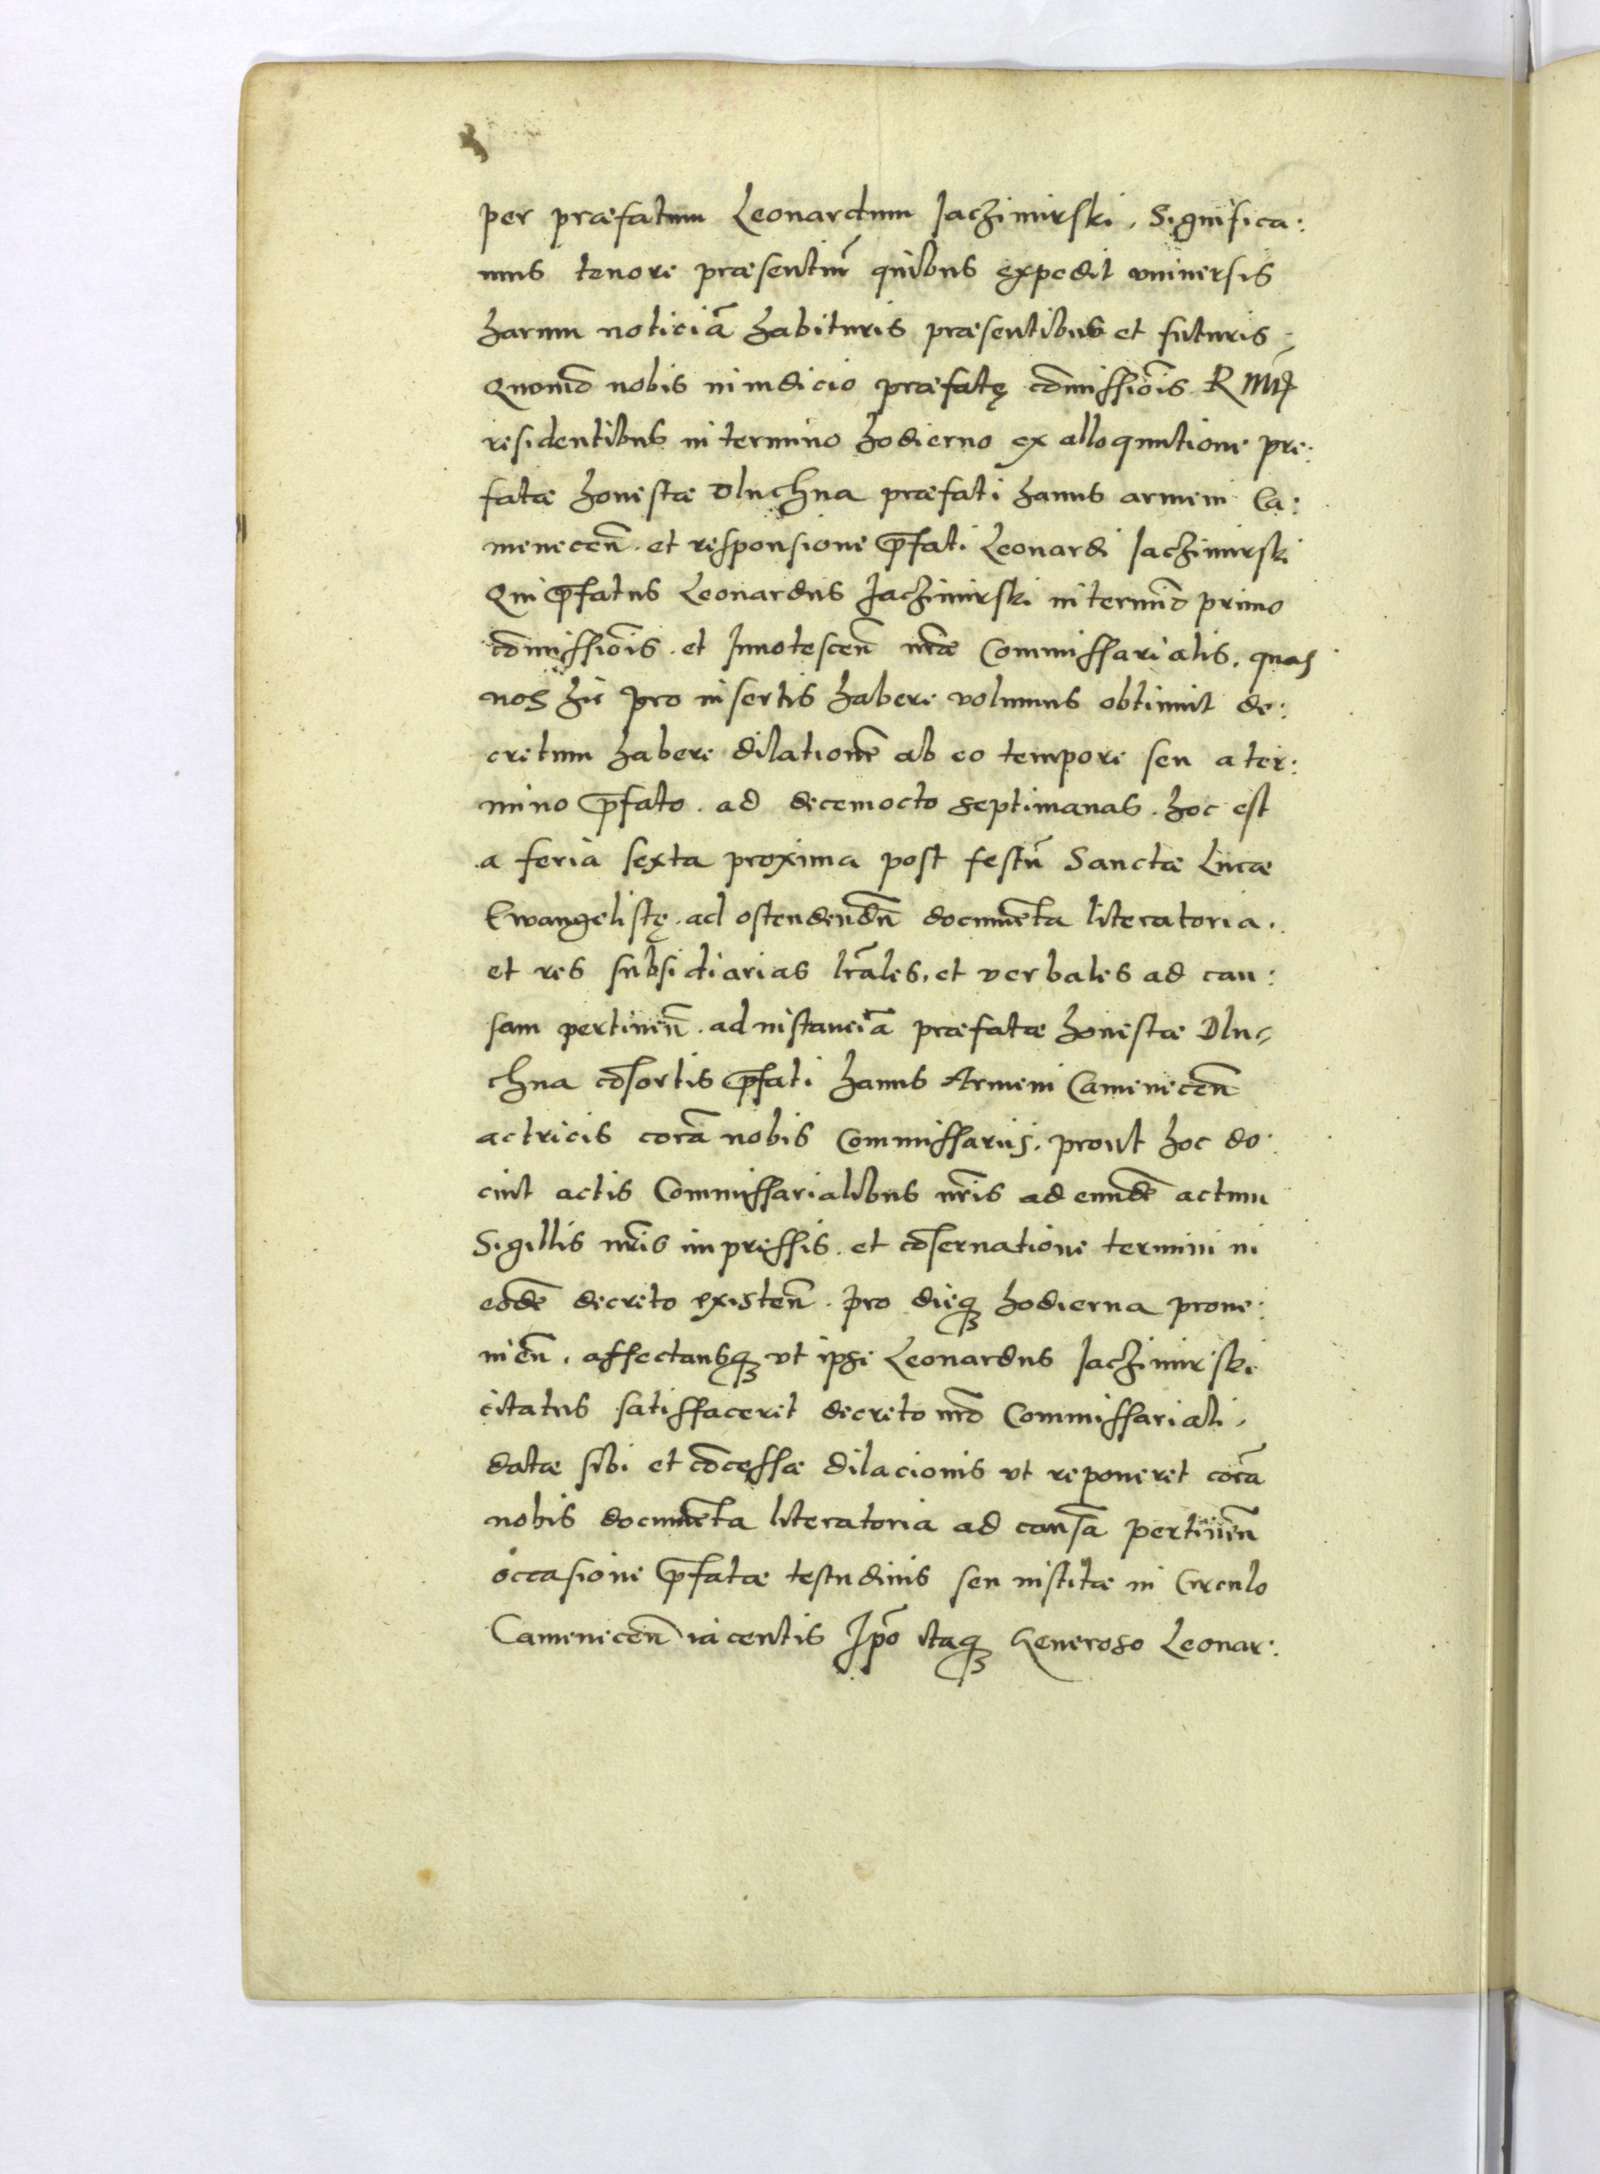 per præfatum Leonardum Jachimirski. Significa:
mus tenore præsentiũ quibus expedit vniuersis
harum noticiã habituris præsentibus et futuris
Quomõ nobis in iudicio præfatę cõmissiõis R Mtis
residentibus in termino hodierno ex alloquutione pre:
fatæ honestæ Oluchna præfati hanus armeni Ca:
menecen̄. et responsione p̄fati Leonardi Jachimirski
Qui p̄fatus Leonardus Jachimirski in termiō primo
cõmissiõis. et Innotescen̄ nr̃æ Commissarialis. quas
nos hic pro insertis habere volumus obtinuit de:
cretum habere dilationẽ ab eo tempore seu a ter:
mino p̄fato. ad decemocto septimanas. hoc est
a feria sexta proxima post festũ Sanctæ Lucæ
Ewangelistę. ad ostendendũ documẽta literatoria.
et res subsidiarias lr̃ales. et verbales ad cau:
sam pertinen̄. ad instanciã præfatæ honestæ Oluc
chna cõsortis p̄fati hanus Armeni Camenecen̄
actricis corã nobis Commissariis. prout hoc do
cuit actis Commissarialibus nr̃is ad eundẽ actum
Sigillis nr̃is impressis. et cõseruatione termini in
eodẽ decreto existen̄. pro dieq̨ hodierna proue:
nien̄. affectansq̨ vt ipse Leonardus Jachimirski
citatus satisfaceret decreto nr̃o Commissariali.
datæ sibi et cõcessæ dilacionis vt reponeret corã
nobis documẽta literatoria ad causã pertinen̄
occasione p̄fatæ testudinis seu institæ in Circulo
Camenecen̄ iacentis Ip̃o itaq̨ Generoso Leonar: